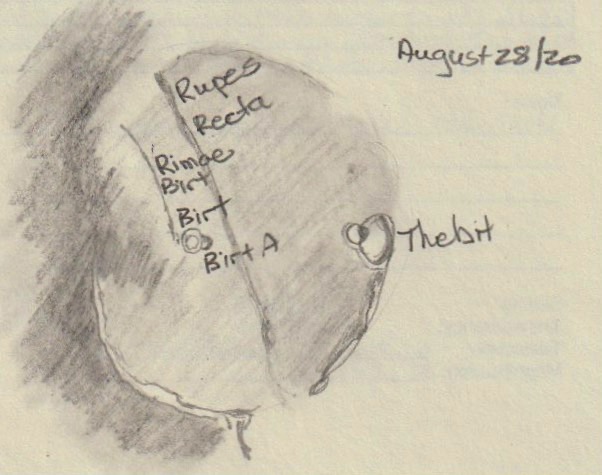 August 28/20
Rupes
Recta
Rimae
Birt
Birt
Birt A
Thebit